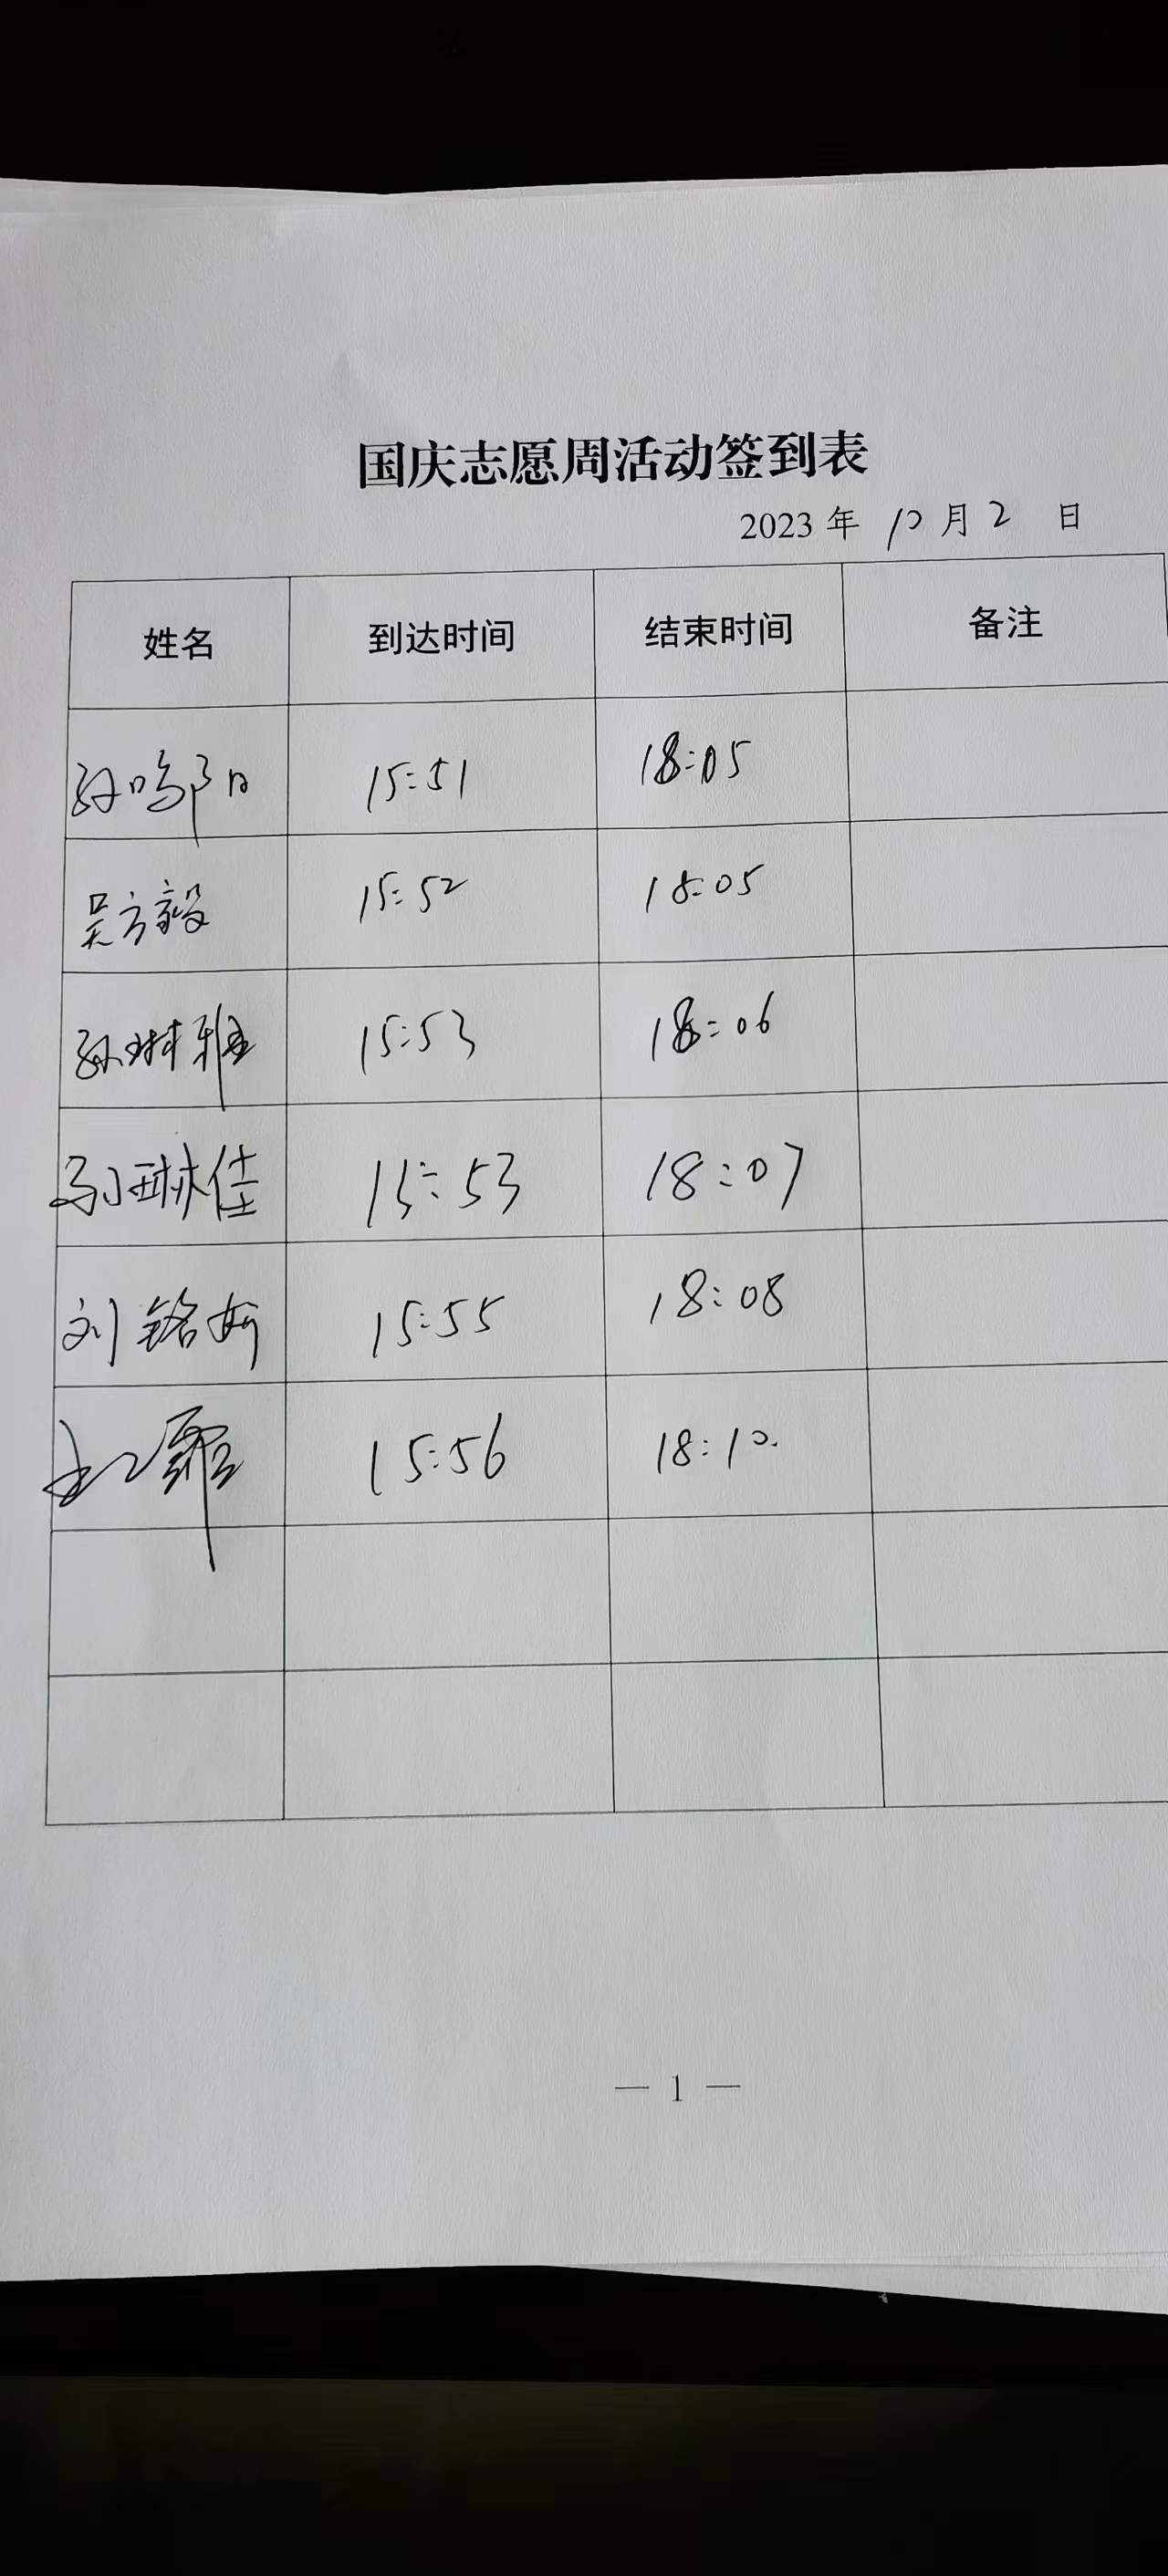 国庆志愿周活动签到表
2023 年 10 月 2 日
姓名 到达时间 结束时间 备注
孙鸣阳 15:51 18:05
吴方毅 15:52 18:05
孙琳雅 15:53 18:06
琳佳 15:53 18:07
刘铭妍 15:55 18:08
15:56 18:10
— 1 —